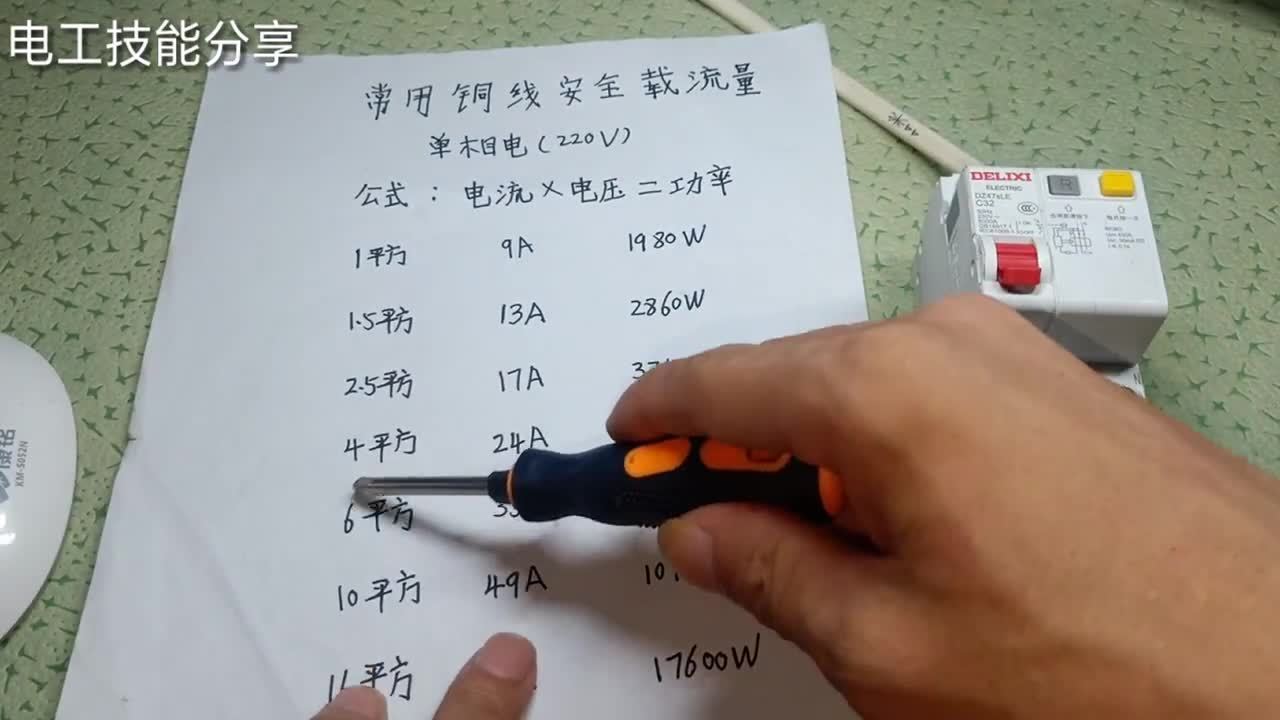 电工技能分享
常用铜线安全载流量
单相电(220V)
公式：电流×电压=功率
1平方 9A 1980W
1.5平方 13A 2860W
2.5平方 17A
4平方 24A
6平方
10平方 49A
平方 17600W
DELIXI
ELECTRIC
DZ47sLE
C32
R
XM-S052N